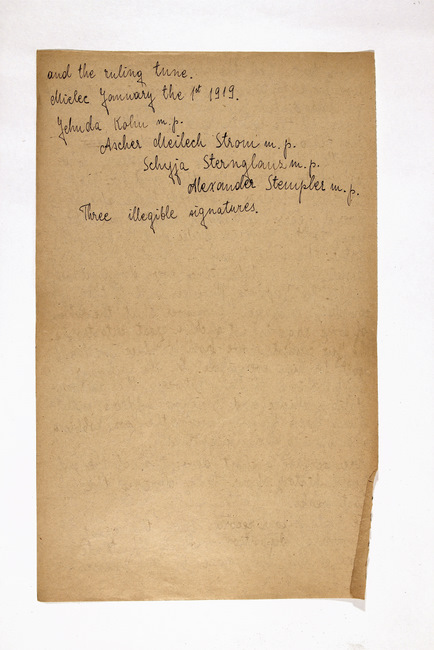 and the ruling tune.
Mielec January the 1st 1919.
Jehuda Kohn m.p.
Ascher Meilech Strom m.p.
Schyja Sternglanz m.p.
Alexander Stempler m.p.
Three illegible signatures.